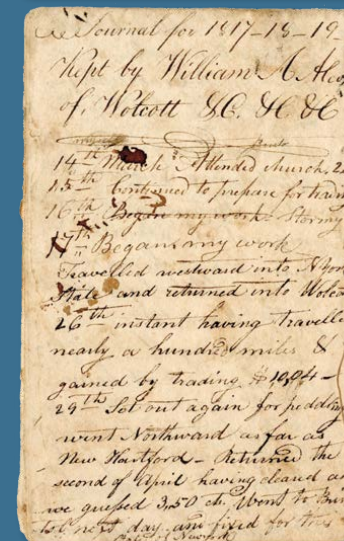 Journal for 1817-18-19
Kept by William A. Alco
of Wolcott &C. &C &C
14th March Attended church. 2
15th Continued to prepare for tradi
16th Began my work. Stormy
17th " Began my work
Travelled westward into N York
State and returned into Wolco
26th instant having travelle
nearly a hundred miles &
gained by trading $10,04 -
29th Set out again for peddling
went Northward as far as
New Hartford - Returned the
second of April having cleared as
we guessed 3.50 cts, Went to Bris
tol next day, and fixed for